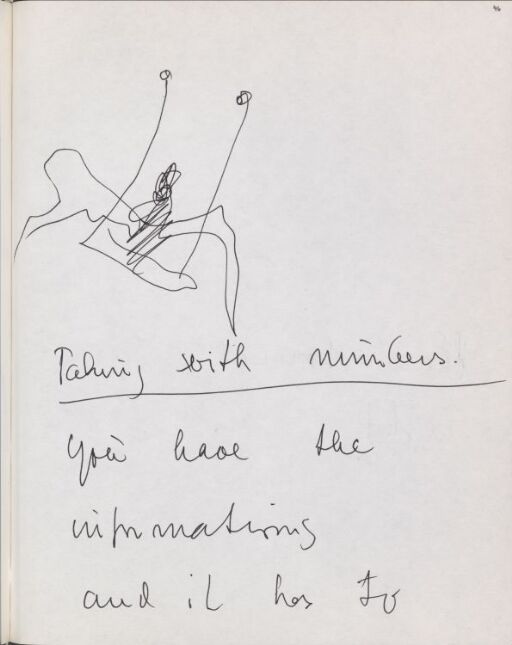 46
Taking with numbers.
You have the
informations
and it has to